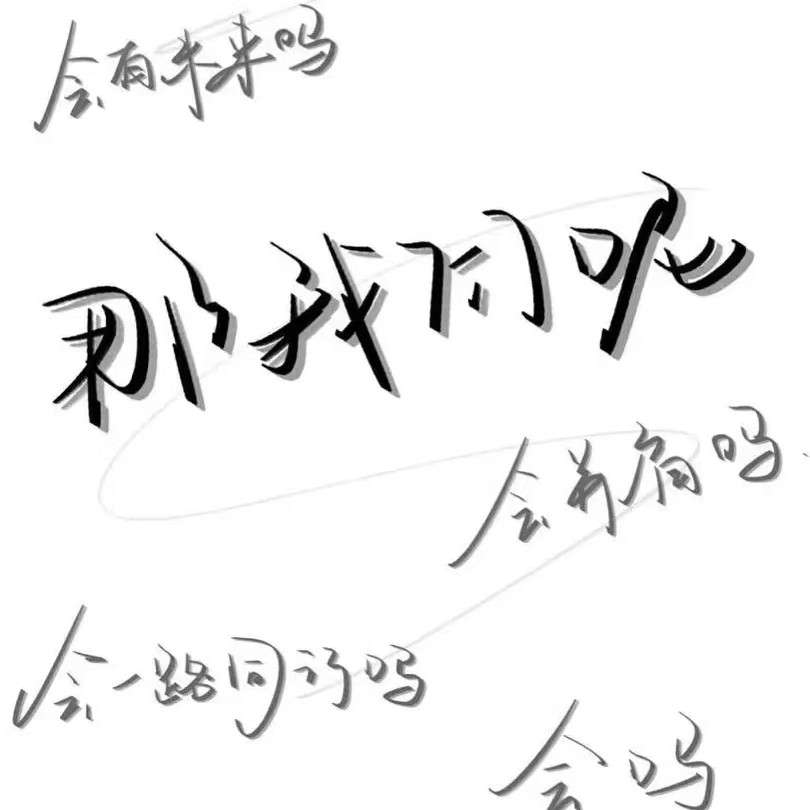 会有未来吗
那我们呢
会并肩吗
会一路同行吗
会吗